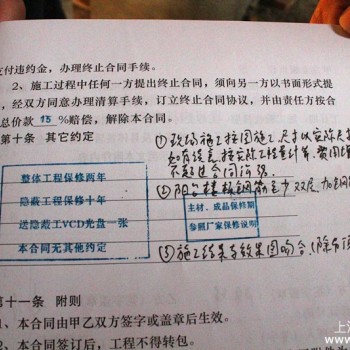 支付违约金，办理终止合同手续。
2、施工过程中任何一方提出终止合同，须向另一方以书面形式提
，经双方同意办理清算手续，订立终止合同协议，并由责任方按合
总价款 15 %赔偿，解除本合同。
第十条 其它约定
①现场施工按图施工，尺寸以实际尺
如有误差按实际工程量计算，费用增
不超过合同
整体工程保修两年
隐蔽工程保修十年
送隐蔽工VCD光盘一张
本合同无其他约定
②阳台楼板钢筋至少双层，加
主材、成品保终期
参照厂家保修说明
③施工结束与效果图吻合
第十一条 附则
1、本合同由甲乙双方签字或盖章后生效。
2、本合同签订后，工程不得转包。
上海